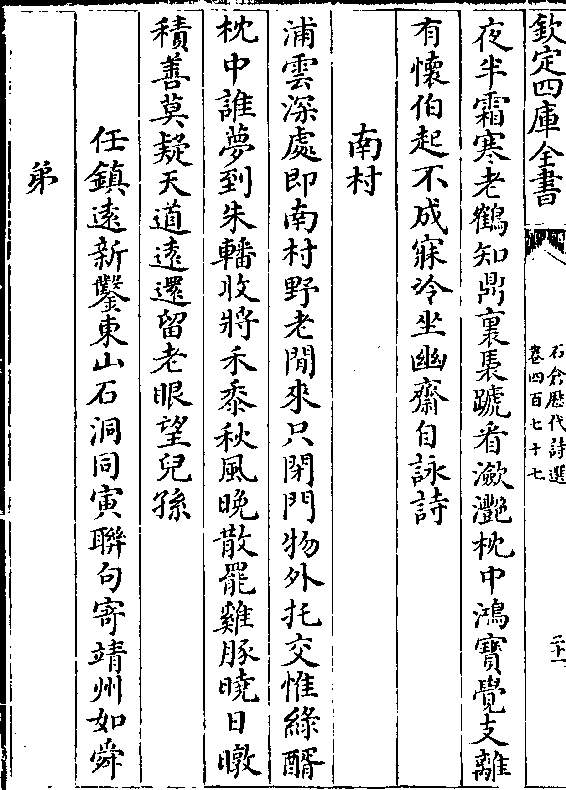 欽定四庫全書
石倉歷代詩選
卷四百七十七
二十一
夜半霜寒老鶴知鼎裏裊蹏看瀲灔枕中鴻寶覺支離
有懷伯起不成寐冷坐幽齋自詠詩
南村
浦雲深處即南村野老閒來只閉門物外托交惟綠醑
枕中誰夢到朱轓收將禾黍秋風晚散罷雞豚曉日暾
積善莫疑天道遠還留老眼望兒孫
任鎮遠新鑿東山石洞同寅聯句寄靖州如舜
弟